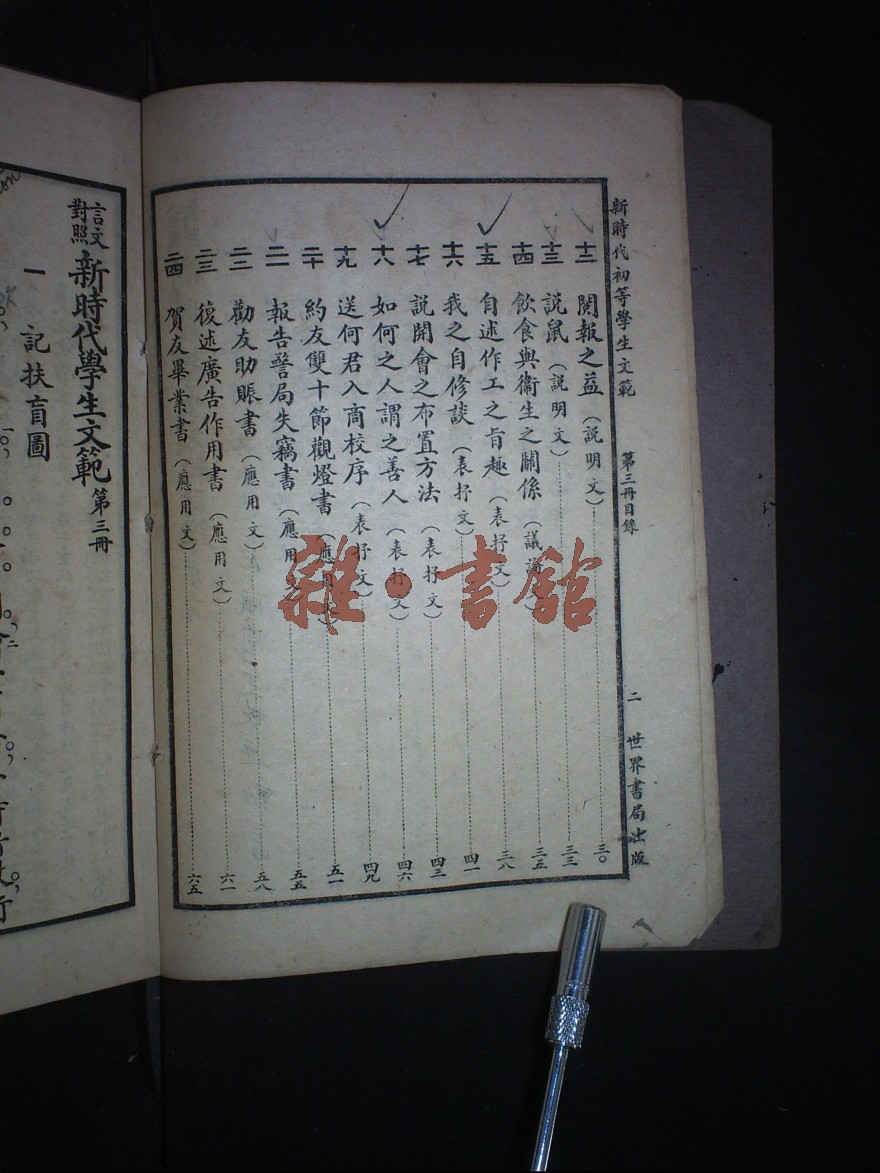 新時代初等學生文範 第三冊目錄 二 世界書局出版
十二 閱報之益(說明文) 三〇
十三 說鼠(說明文) 三三
十四 飲食與衞生之關係(議論文) 三五
十五 自述作工之旨趣(表抒文) 三八
十六 我之自修談(表抒文) 四一
十七 說開會之布置方法(表抒文) 四三
十八 如何之人謂之善人(表抒文) 四六
十九 送何君入商校序(表抒文) 四九
二十 約友雙十節觀燈書(應用文) 五一
二一 報告警局失竊書(應用文) 五五
二二 勸友助賑書(應用文) 五八
二三 復述廣告作用書(應用文) 六一
二四 賀友畢業書(應用文) 六五
言文對照 新時代學生文範 第三冊
一 記扶盲圖
雜·書館